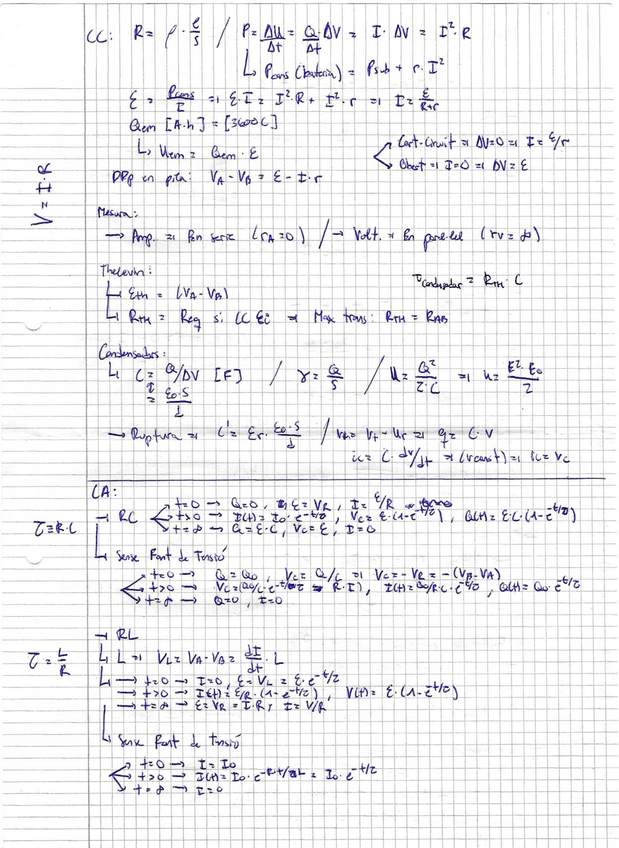 CC: R = ρ · ℓ/S / P = ΔU/Δt = Q/Δt · ΔV = I · ΔV = I² · R
↳ Pcons (bateria) = Psub + r · I²
ε = Pcons/I ⇒ ε · I = I² · R + I² · r ⇒ I = ε/R+r
Qem [A·h] = [3600C]
↳ Uem = Qem · ε
Curt-Circuit ⇒ ΔV=0 ⇒ I = ε/r
Obert ⇒ I=0 ⇒ ΔV = ε
DDP en pila: VA - VB = ε - I · r
V = I · R
Mesura:
→ Amp. ⇒ En serie (rA = 0) / → Volt. ⇒ En paral·lel (rV = ∞)
Thevenin:
τcondensador = RTH · C
↳ εth = (VA - VB)
↳ RTH = Req si CC εi ⇒ Max trans: RTH = RAB
Condensadors:
↳ C = Q/ΔV [F] / γ = Q/S / U = Q²/2·C ⇒ u = E²·ε0/2
= ε0·S/d
→ Ruptura ⇒ C' = εr · ε0·S/d / q = C · V
ic = C · dv/dt ⇒ (Vconst) ⇒
CA:
τ = R·C
→ RC
t=0 → Q=0, ε = VR, I = ε/R
t>0 → I(t) = I0 · e^-t/τ, VC = ε · (1 - e^-t/τ), Q(t) = ε · C · (1 - e^-t/τ)
t=∞ → Q = ε · C, VC = ε, I = 0
↳ Sense Font de Tensió
t=0 → Q = Q0, VC = Q/C ⇒ VC = -VR = -(VB - VA)
t>0 → VC = (Q0/C · e^-t/τ = R · I), I(t) = Q0/R·C · e^-t/τ, Q(t) = Q0 · e^-t/τ
t=∞ → Q=0, I=0
τ = L/R
→ RL
↳ L ⇒ VL = VA - VB = dI/dt · L
↳ → t=0 → I=0, ε = VL = ε · e^-t/τ
→ t>0 → I(t) = ε/R · (1 - e^-t/τ), V(t) = ε · (1 - e^-t/τ)
→ t=∞ → ε = VR = I · R, I = V/R
↳ Sense Font de Tensió
t=0 → I = I0
t>0 → I(t) = I0 · e^-R·t/L = I0 · e^-t/τ
t=∞ → I=0